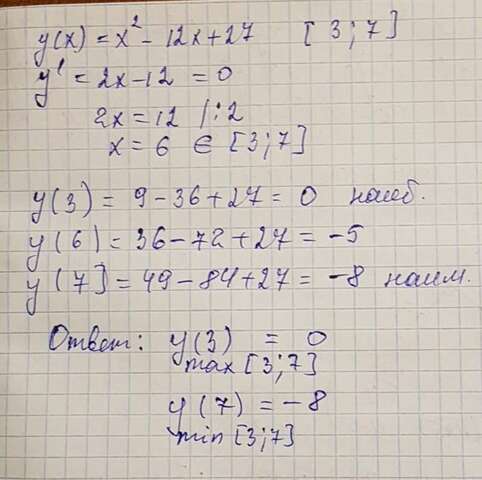 y(x) = x² - 12x + 27 [3;7]
y' = 2x - 12 = 0
2x = 12 |:2
x = 6 ∈ [3;7]
y(3) = 9 - 36 + 27 = 0 наиб.
y(6) = 36 - 72 + 27 = -5
y(7] = 49 - 84 + 27 = -8 наим.
Ответ: y(3) = 0
max [3;7]
y(7) = -8
min [3;7]